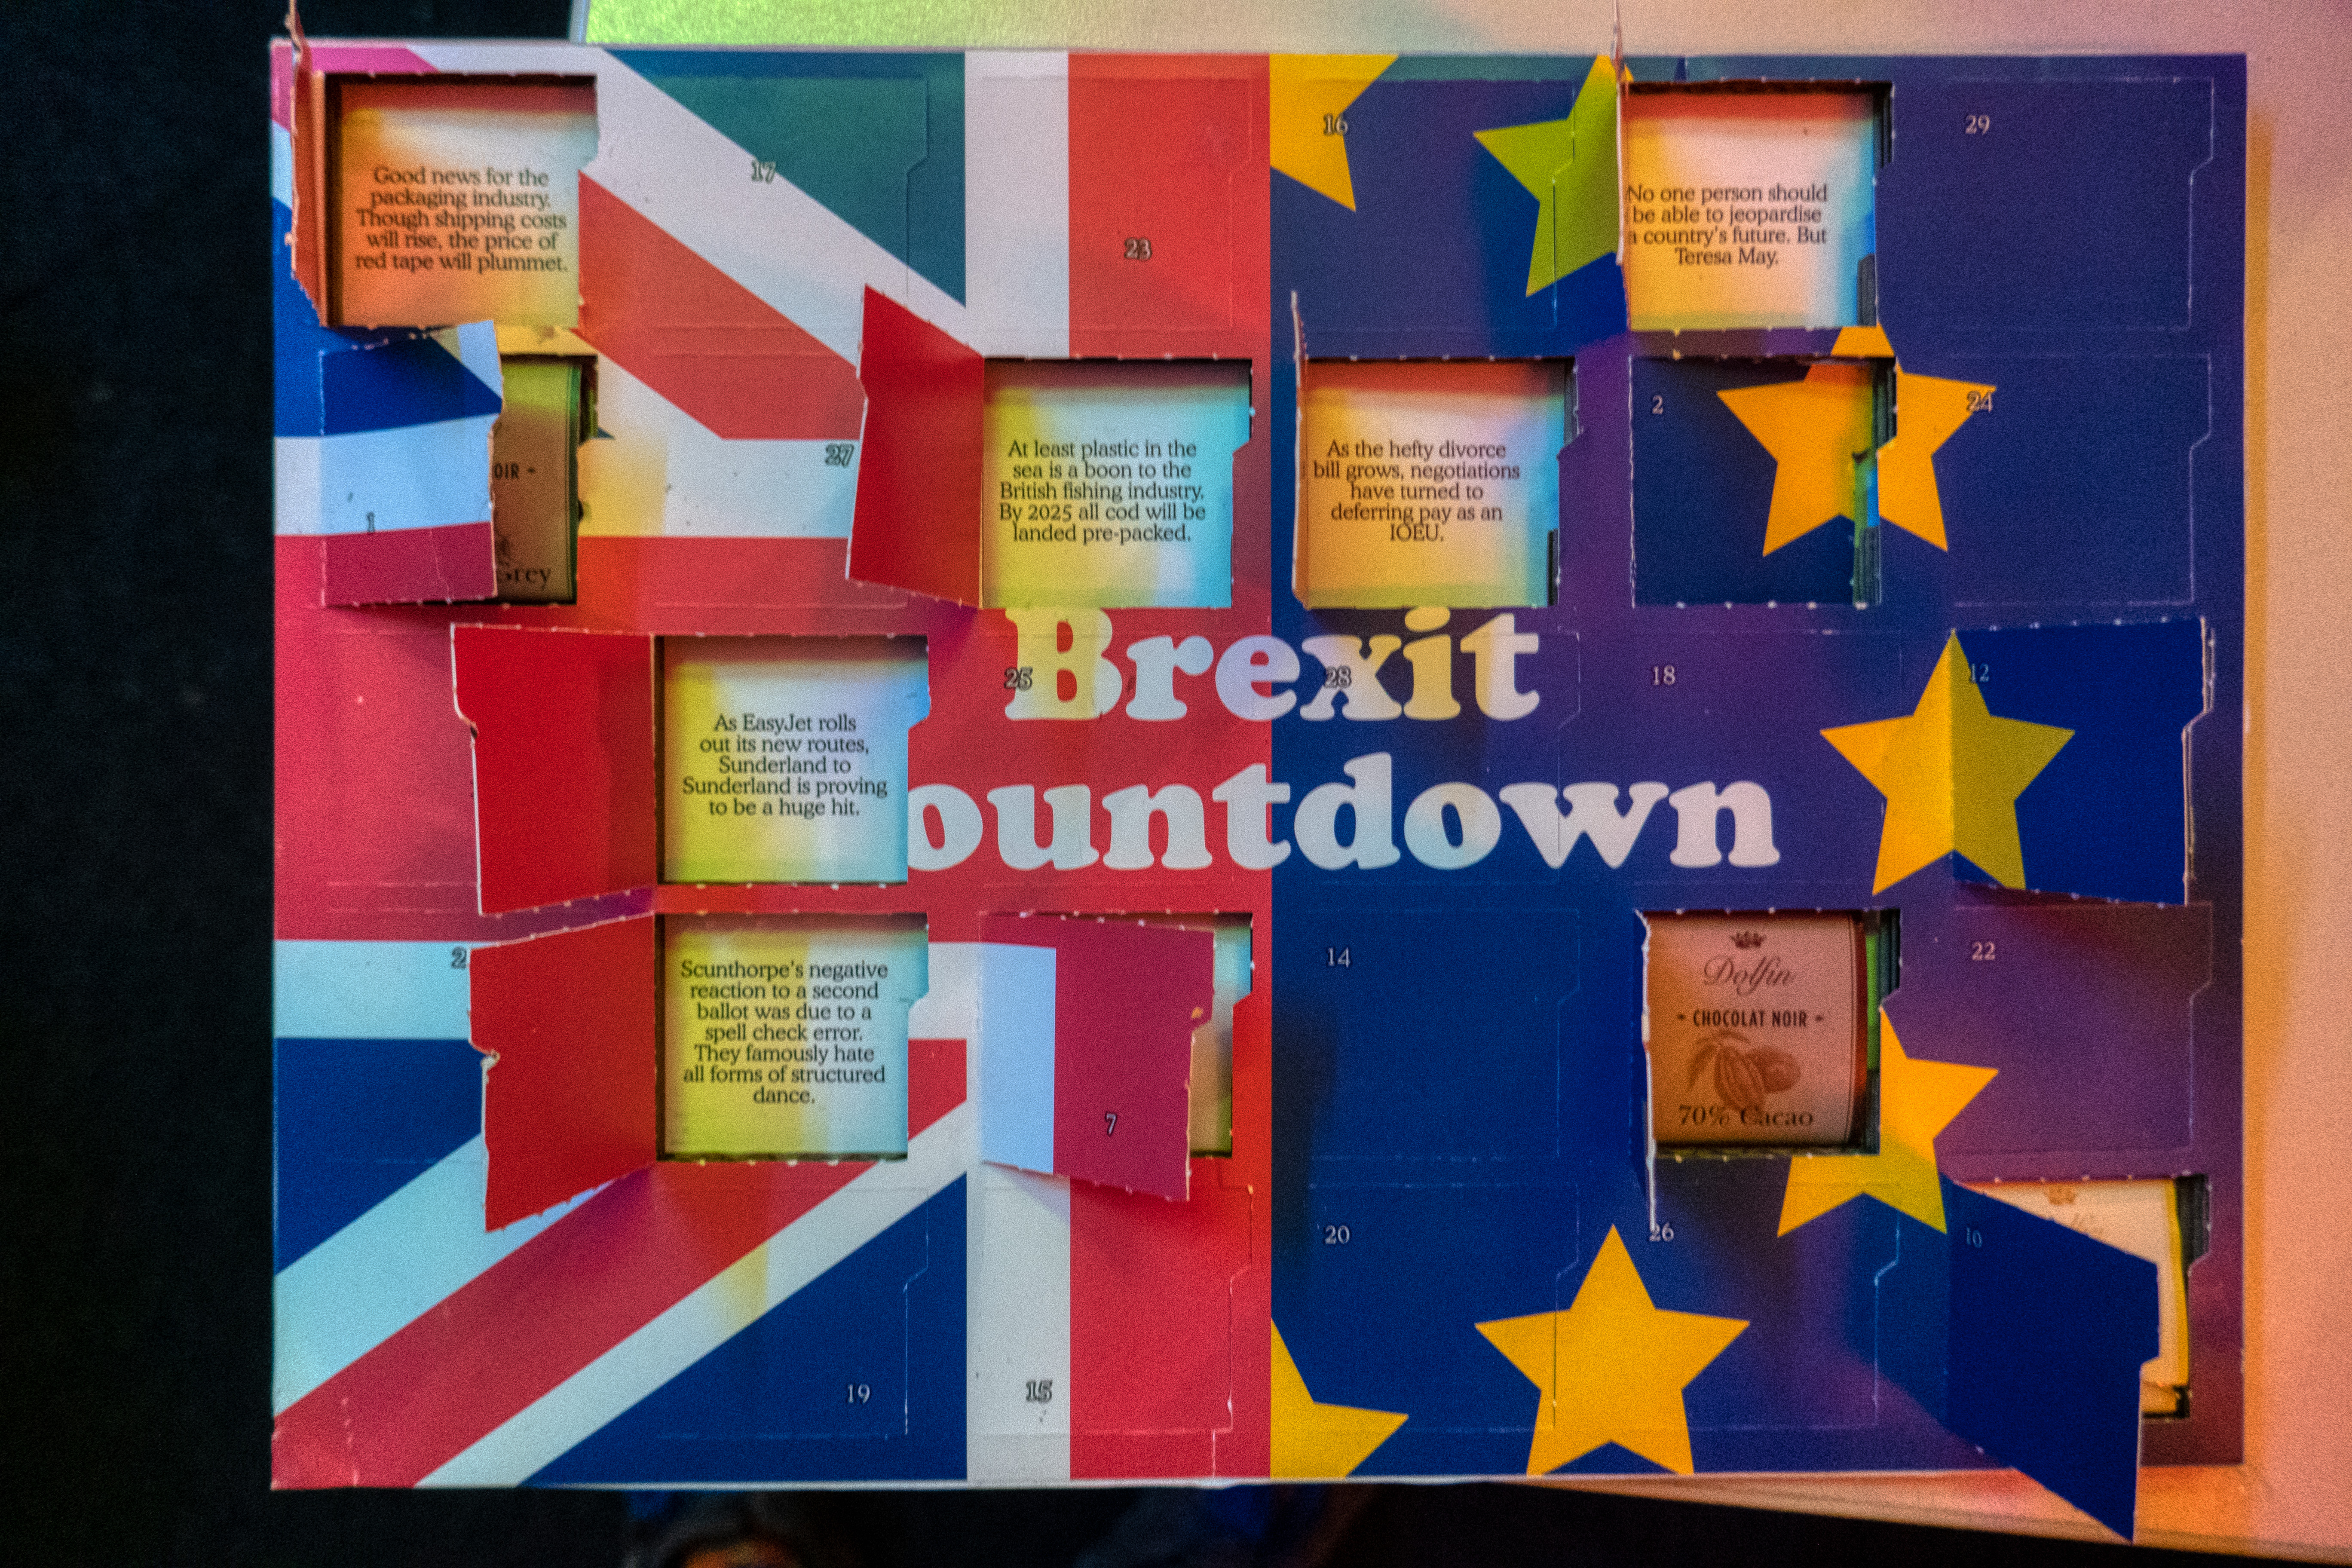 Good news for the
packaging industry.
Though shipping costs
will rise, the price of
red tape will plummet.
17
23
16
No one person should
be able to jeopardise
a country's future. But
Teresa May.
29
1
OIR -
Grey
27
At least plastic in the
sea is a boon to the
British fishing industry.
By 2025 all cod will be
landed pre-packed.
As the hefty divorce
bill grows, negotiations
have turned to
deferring pay as an
IOEU.
2
24
As EasyJet rolls
out its new routes,
Sunderland to
Sunderland is proving
to be a huge hit.
25
28
18
12
Brexit
ountdown
2
Scunthorpe's negative
reaction to a second
ballot was due to a
spell check error.
They famously hate
all forms of structured
dance.
7
14
Dolfin
- CHOCOLAT NOIR -
70% Cacao
22
19
15
20
26
10